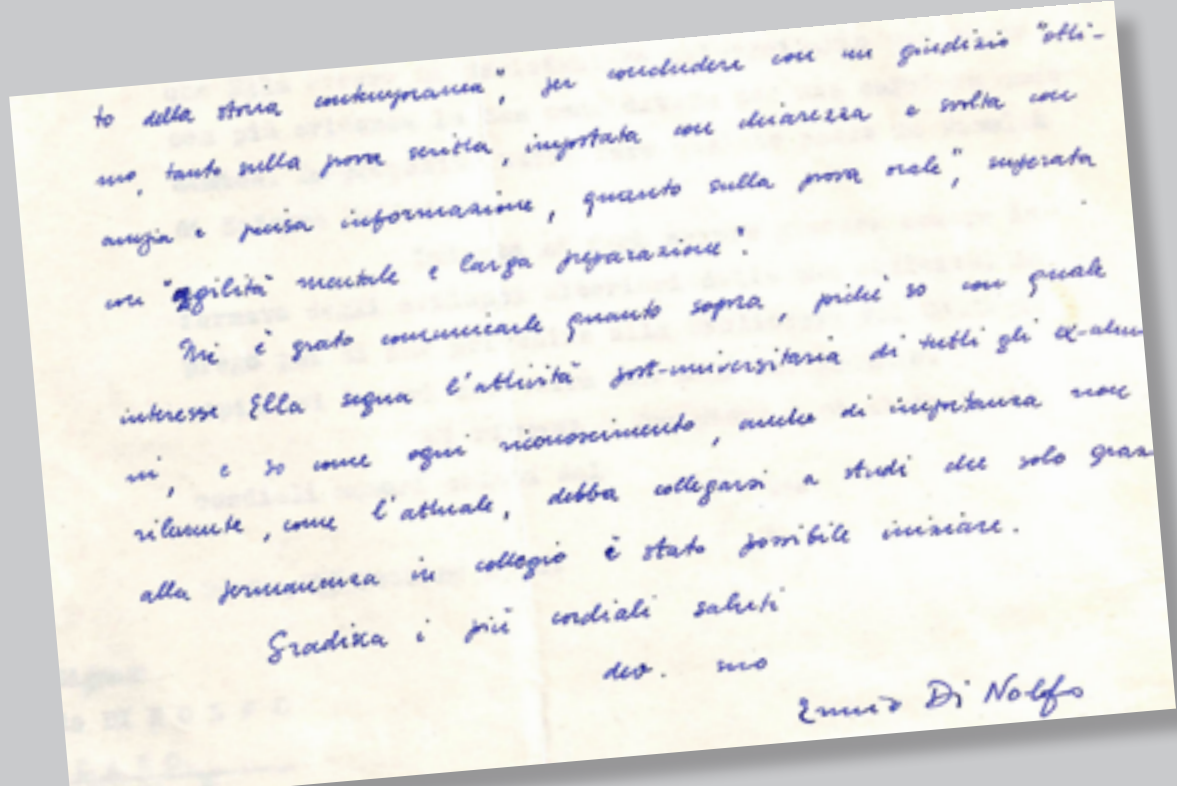 to della storia contemporanea", per concludere con un giudizio "otti-
mo, tanto sulla prova scritta, impostata con chiarezza e svolta con
ampia e precisa informazione, quanto sulla prova orale", superata
con "agilità mentale e larga preparazione".
Mi è grato comunicarle quanto sopra, poiché so con quale
interesse Ella segua l'attività post-universitaria di tutti gli ex-alun-
ni, e so come ogni riconoscimento, anche di importanza non
rilevante, come l'attuale, debba collegarsi a studi che solo graz
alla permanenza in collegio è stato possibile iniziare.
Gradisca i più cordiali saluti
dev. suo
Ennio Di Nolfo